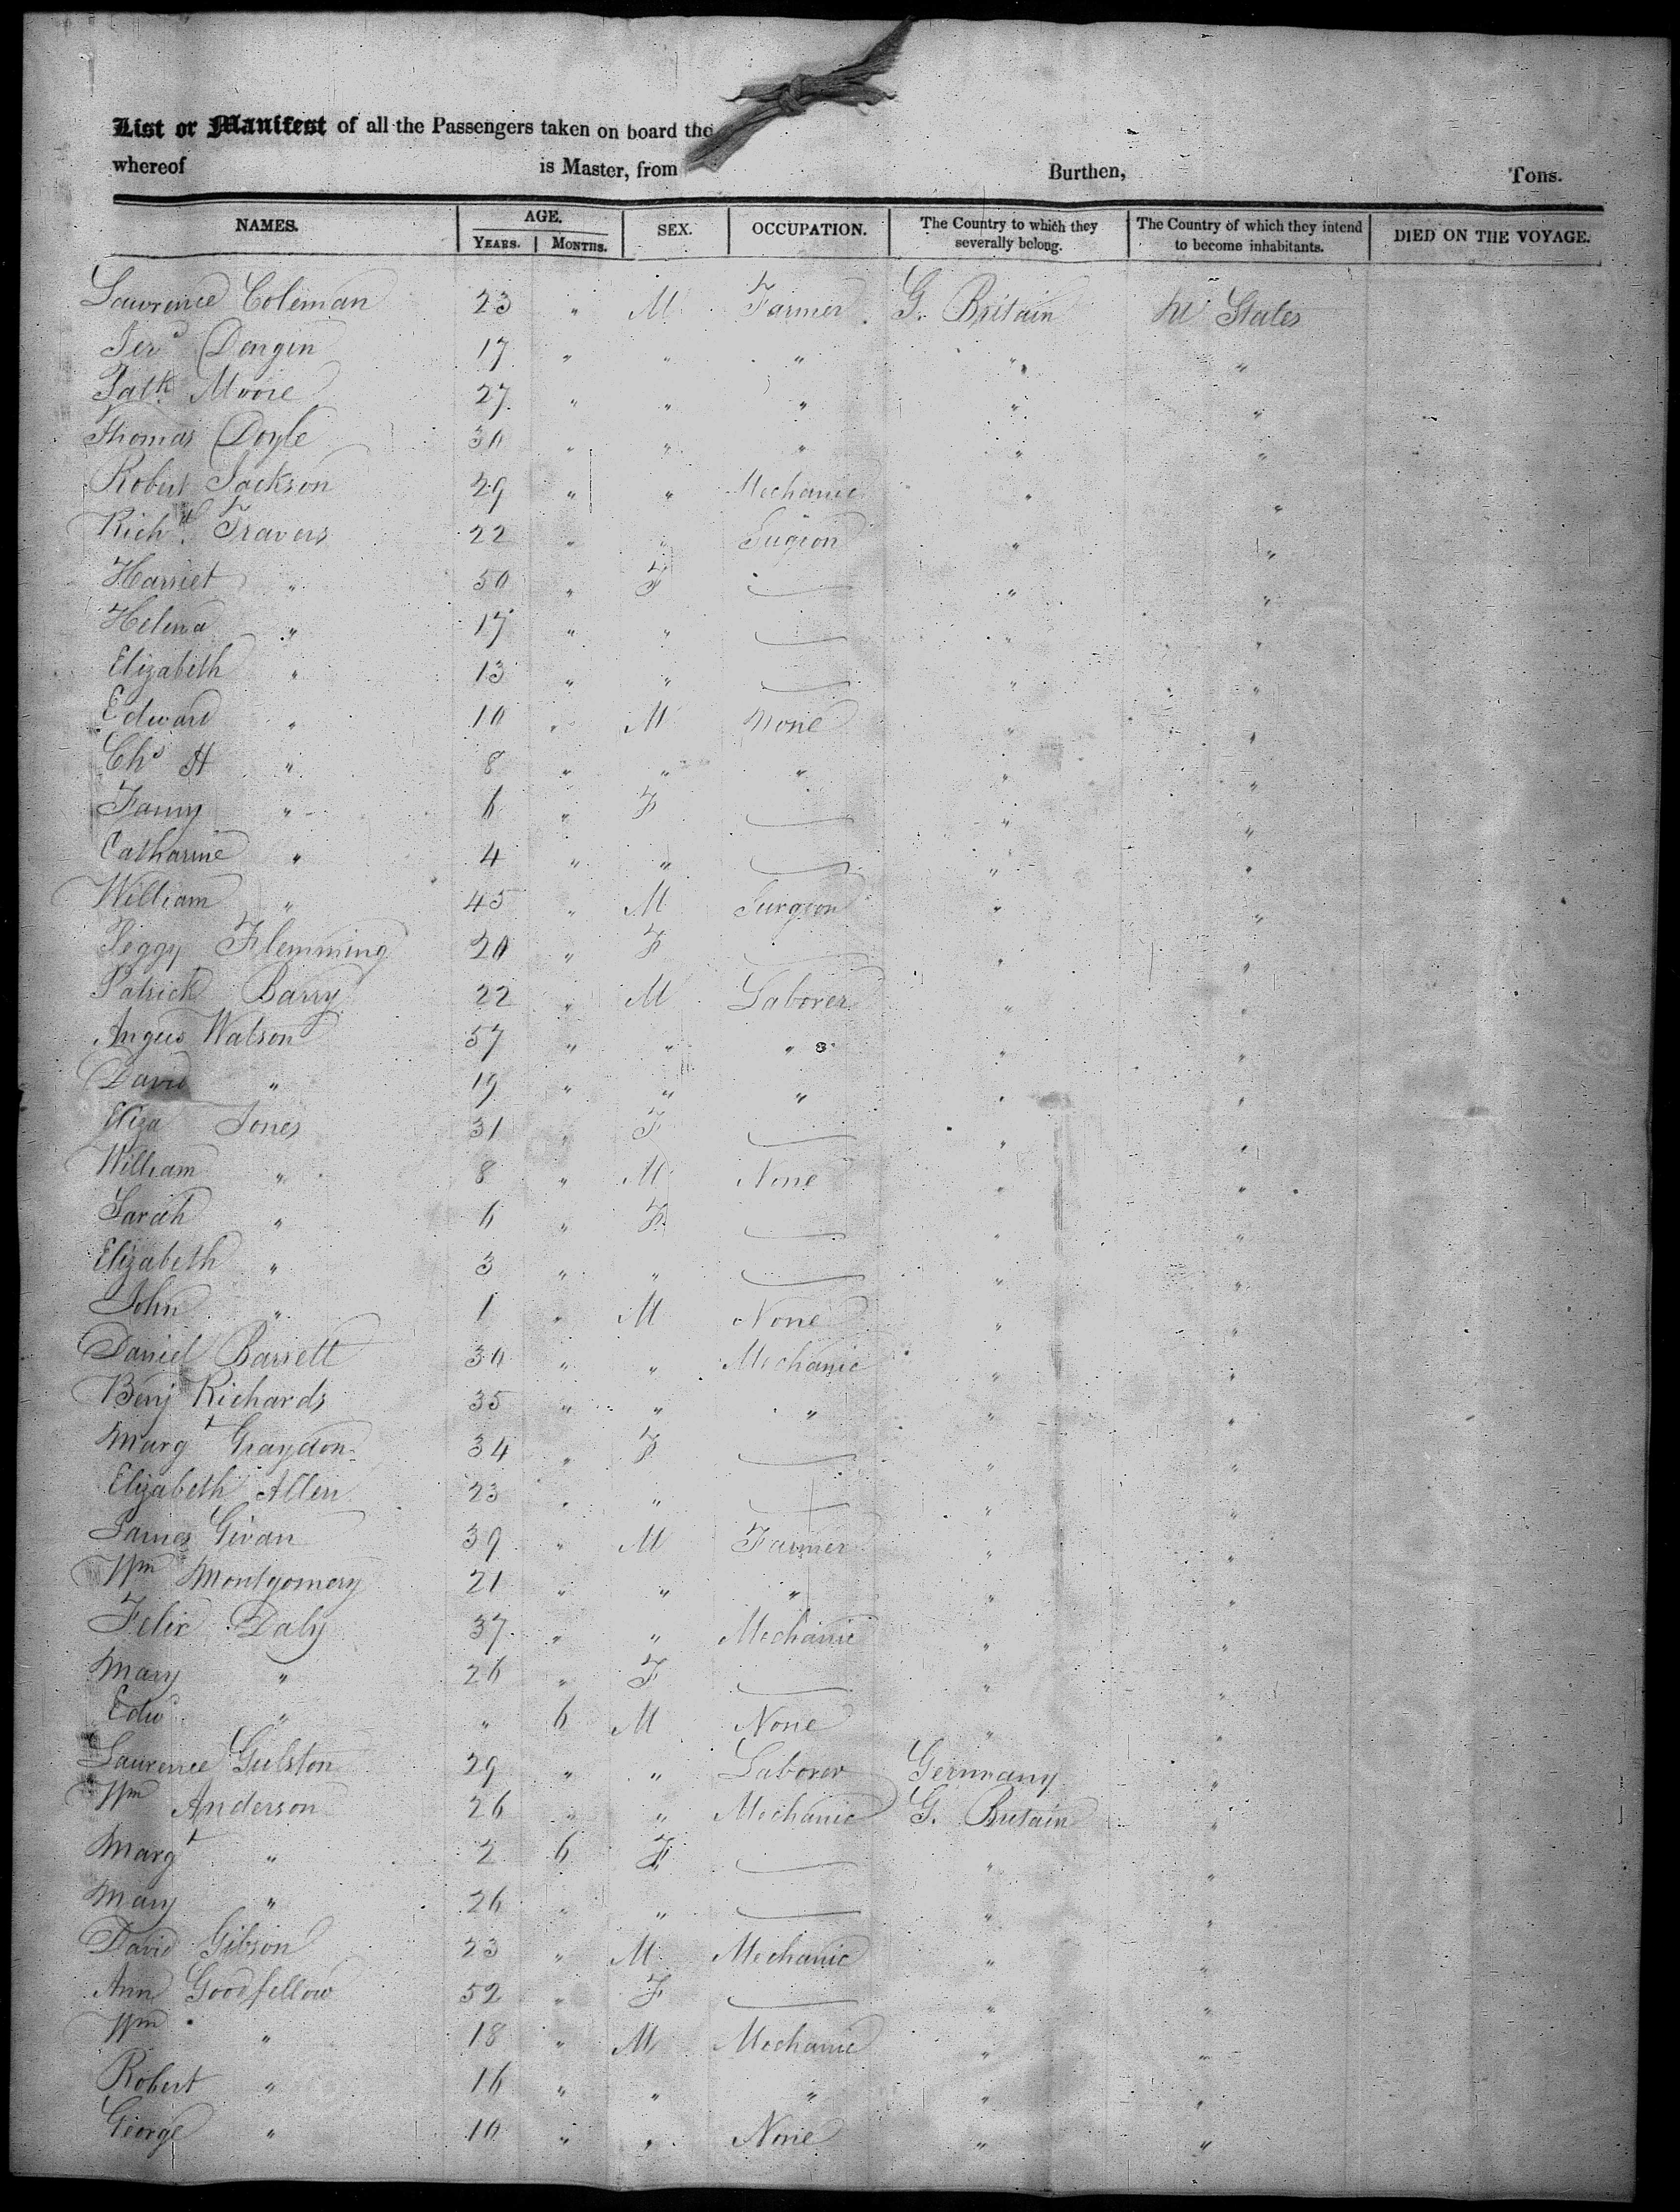 List or Manifest of all the Passengers taken on board the
whereof is Master, from Burthen, Tons.
NAMES. AGE. SEX. OCCUPATION. The Country to which they severally belong. The Country of which they intend to become inhabitants. DIED ON THE VOYAGE.
YEARS. MONTHS.
Lawrence Coleman 23 " M Farmer G. Britain U States
Jer Dongen 17 " " " " "
Patk Moore 27 " " " " "
Thomas Doyle 30 " " " " "
Robert Jackson 29 " " Mechanic " "
Richd Travers 22 " " Sugeon " "
Harriet " 50 " F — " "
Helena " 17 " " — " "
Elizabeth " 13 " " — " "
Edward " 10 " M None " "
Chs H " 8 " " " " "
Fanny " 6 " F — " "
Catharine " 4 " " — " "
William " 45 " M Surgeon " "
Peggy Flemming 20 " F — " "
Patrick Barry 22 " M Laborer " "
Angus Watson 57 " " " " "
David " 19 " " " " "
Eliza Jones 31 " F — " "
William " 8 " M None " "
Sarah " 6 " F — " "
Elizabeth " 3 " " — " "
John " 1 " M None " "
Daniel Barrett 30 " " Mechanic " "
Benj Richards 35 " " " " "
Margt Graydon 34 " F — " "
Elizabeth Allen 23 " " — " "
James Givan 39 " M Farmer " "
Wm Montgomery 21 " " " " "
Felix Daly 37 " " Mechanic " "
Mary " 26 " F — " "
Edwd " " 6 M None " "
Laurence Gulston 29 " " Laborer Germany "
Wm Anderson 26 " " Mechanic G. Britain "
Margt " 2 6 F — " "
Mary " 26 " " — " "
David Gibson 23 " M Mechanic " "
Ann Goodfellow 52 " F — " "
Wm " 18 " M Mechanic " "
Robert " 16 " " " " "
George " 10 " " None " "